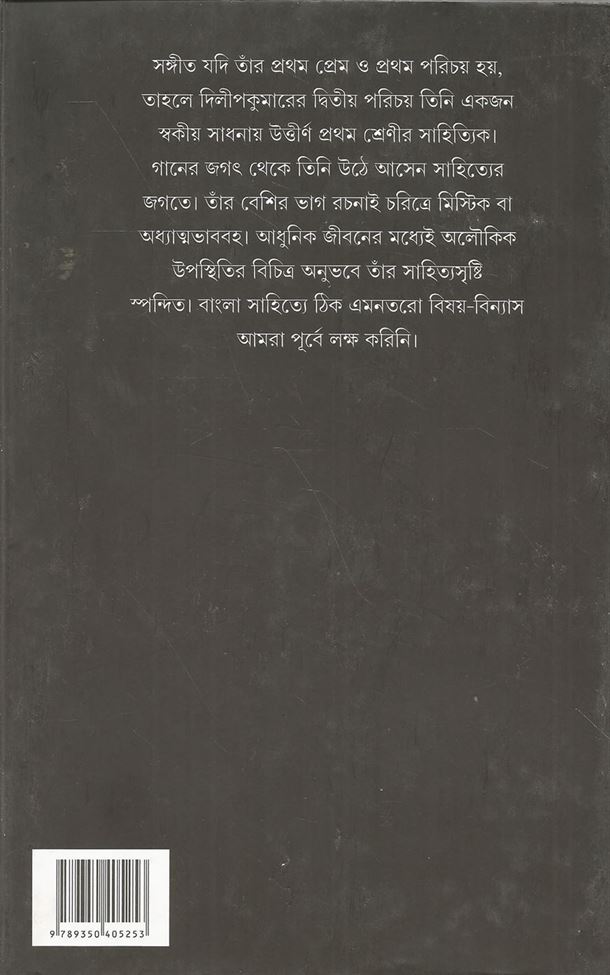 সঙ্গীত যদি তাঁর প্রথম প্রেম ও প্রথম পরিচয় হয়,
তাহলে দিলীপকুমারের দ্বিতীয় পরিচয় তিনি একজন
স্বকীয় সাধনায় উত্তীর্ণ প্রথম শ্রেণীর সাহিত্যিক।
গানের জগৎ থেকে তিনি উঠে আসেন সাহিত্যের
জগতে। তাঁর বেশির ভাগ রচনাই চরিত্রে মিস্টিক বা
অধ্যাত্মভাববহ। আধুনিক জীবনের মধ্যেই অলৌকিক
উপস্থিতির বিচিত্র অনুভবে তাঁর সাহিত্যসৃষ্টি
স্পন্দিত। বাংলা সাহিত্যে ঠিক এমনতরো বিষয়-বিন্যাস
আমরা পূর্বে লক্ষ করিনি।
9 789350 405253